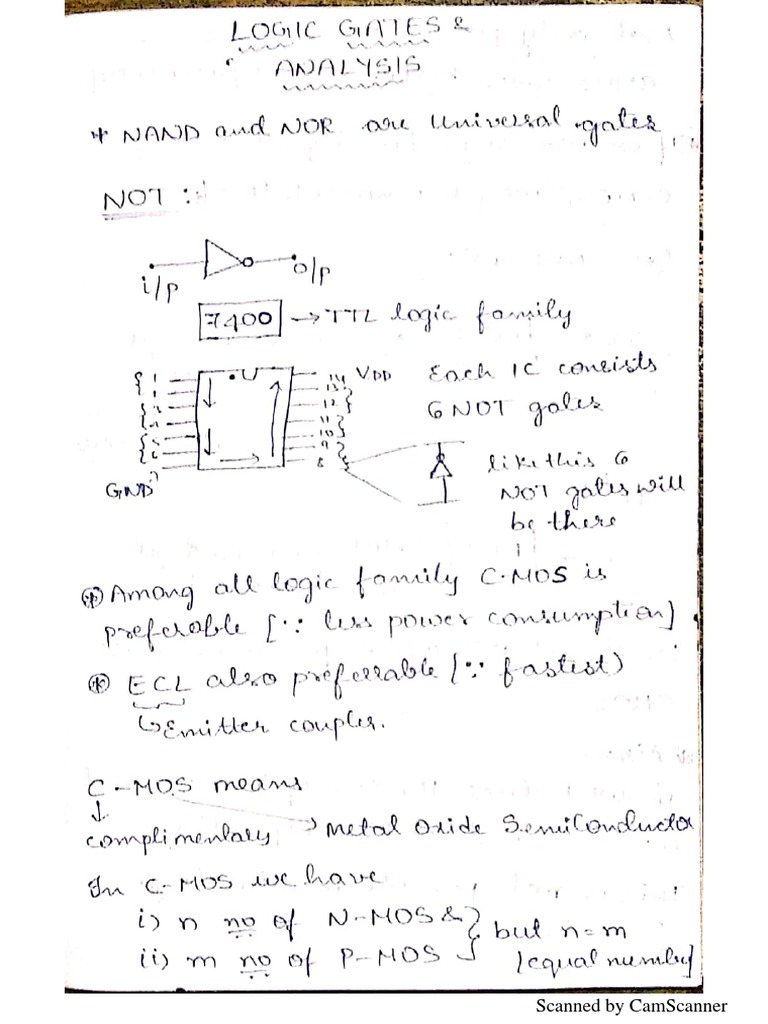 LOGIC GATES &
ANALYSIS
* NAND and NOR are Universal gates
NOT :-
i/p
o/p
7400 → TTL logic family
1
14 VDD
13
12
11
10
9
8
GND
Each IC consists
6 NOT gates
like this 6
NOT gates will
be there
* Among all logic family C-MOS is
preferable [∵ less power consumption].
* ECL also preferrable (∵ fastest)
↳ Emitter couples.
C-MOS means
↓
complimentary → Metal Oxide SemiConductor
In C-MOS we have
i) n no of N-MOS &
ii) m no of P-MOS
but n=m
[equal number]
Scanned by CamScanner